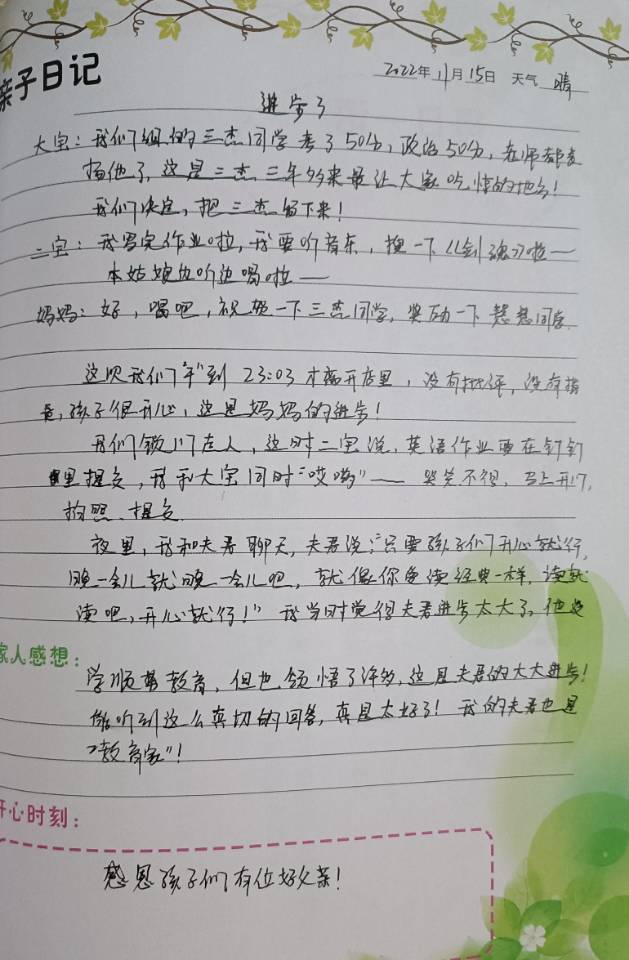 亲子日记
2022年11月15日 天气 晴
进步了
大宝：我们组的三杰同学考了50分，政治50分，老师都表
扬他了，这是三杰三年多来最让大家吃惊的地方！
我们决定，把三杰留下来！
二宝：我写完作业啦，我要听音乐，搜一下《剑魂》啦——
本姑娘边听边喝啦——
妈妈：好，喝吧，祝贺一下三杰同学，奖励一下慧慧同学
这次我们"干"到23:03才离开店里，没有批评，没有指
责，孩子很开心，这是妈妈的进步！
我们锁门走人，这时二宝说，英语作业要在钉钉
里提交，我和大宝同时"哎哟"——哭笑不得，马上开门，
拍照、提交
夜里，我和夫君聊天，夫君说："只要孩子们开心就行，
晚一会儿就晚一会儿吧，就像你鱼读经典一样，读就
读吧，开心就行！"我当时觉得夫君进步太大了，他没
家人感想：
学顺势教育，但也领悟了许多，这是夫君的大大进步！
能听到这么真切的回答，真是太好了！我的夫君也是
"教育家"！
开心时刻：
感恩孩子们有位好父亲！